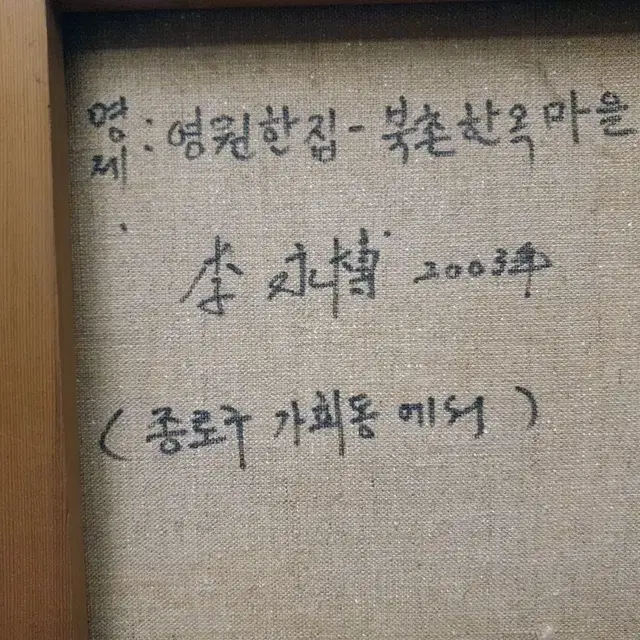 명제: 영원한집 - 북촌한옥마을
李永博 2003年
(종로구 가회동 에서)